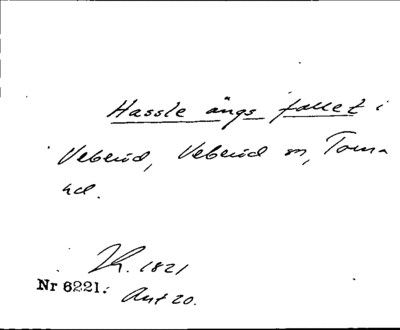 Hassle ängs fallet i
Veberöd, Veberöd sn, Torna
hd.
Th. 1821
Nr 6221. Ant 20.